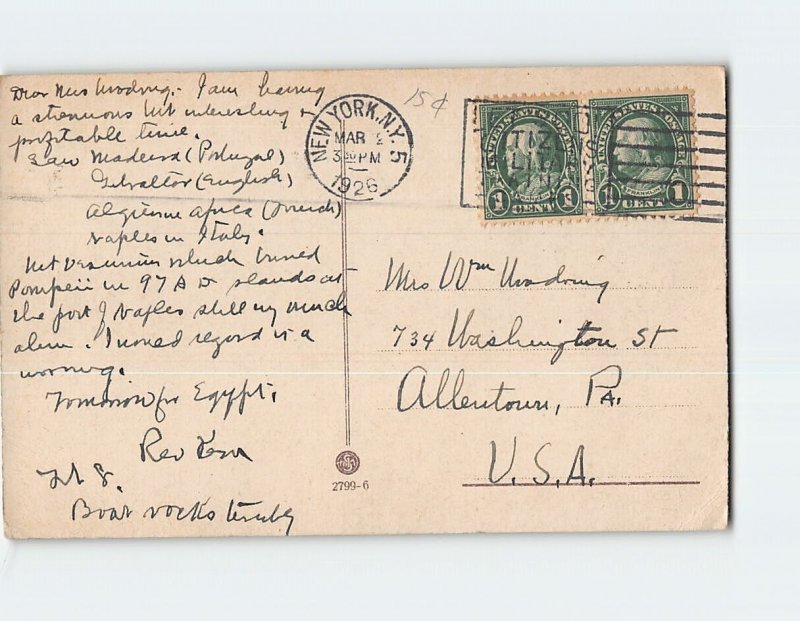 Dear Mrs Woodring. I am having
a strenuous but interesting +
profitable time.
Saw Madeira (Portugal)
Gibraltar (English)
Algiers in Africa (French)
Naples in Italy.
Mt Vesuvius which buried
Pompeii in 97 A D stands at
the port of Naples still very much
alive. I would regard it a
warning.
Tomorrow for Egypt.
Rev
Boat rocks terribly
2799-6
15¢
NEW YORK, N.Y. 5
MAR 2
3 PM
1926
UNITED STATES POSTAGE
1 CENT 1
UNITED STATES POSTAGE
1 CENT 1
Mrs Wm Woodring
734 Washington St
Allentown, PA.
U.S.A.